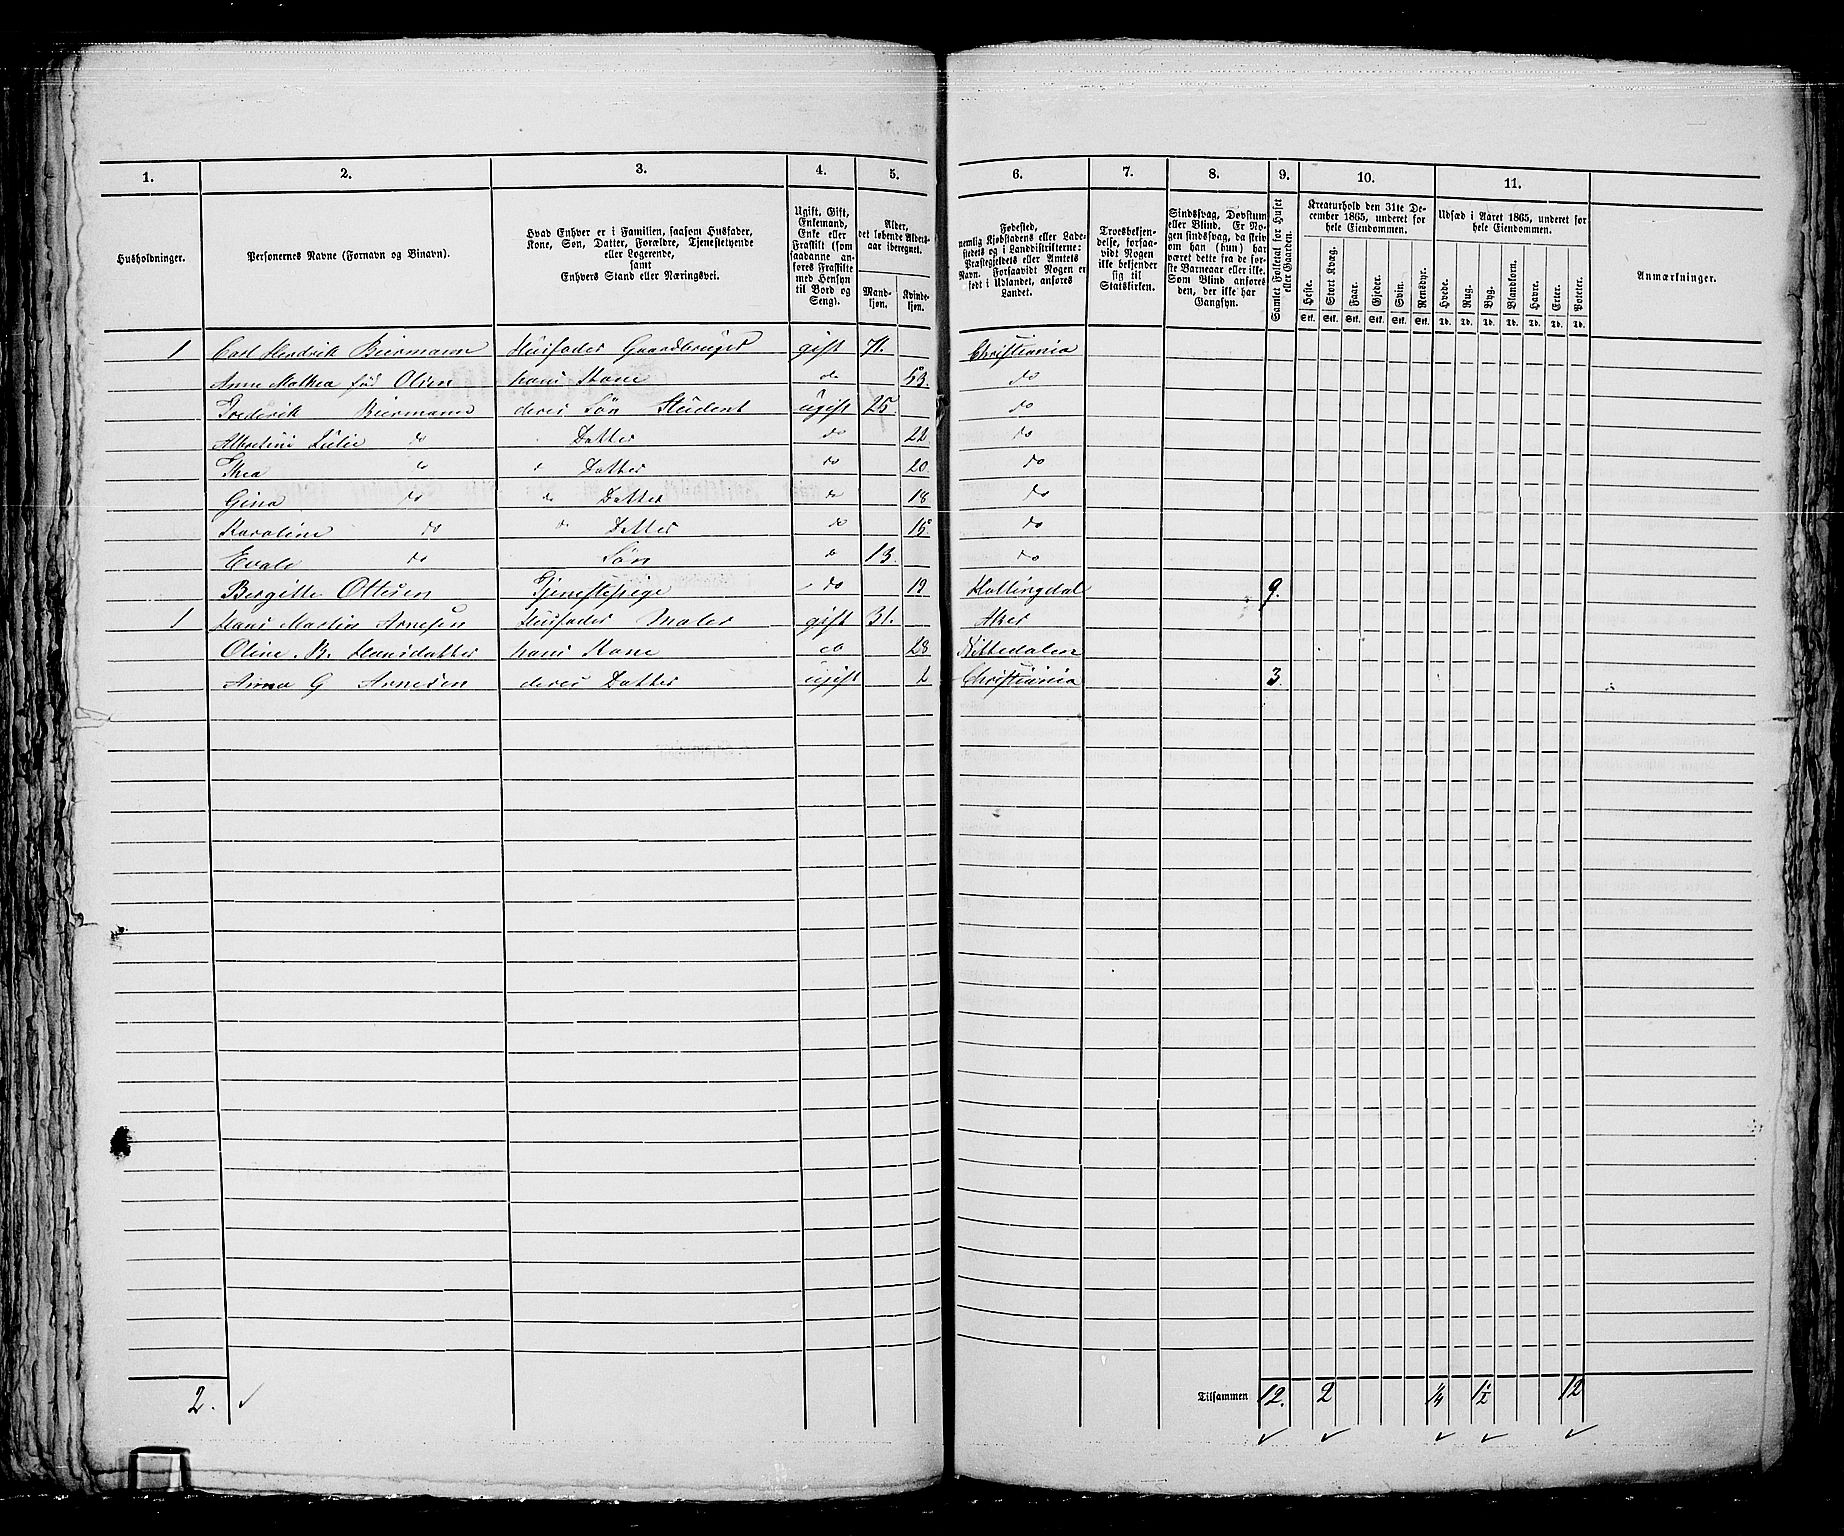 1. 2. 3. 4. 5. 6. 7. 8. 9. 10. 11.
Husholdninger.
Personernes Navne (Fornavn og Binavn).
Hvad Enhver er i Familien, saasom Husfader,
Kone, Søn, Datter, Forældre, Tjenestetyende
eller Logerende,
samt
Enhvers Stand eller Næringsvei.
Ugift, Gift,
Enkemand,
Enke eller
Fraskilt (som
saadanne an-
føres Fraskilte
med Hensyn
til Bord og
Seng).
Alder,
det løbende Alders-
aar iberegnet.
Mand-
kjøn.
Kvinde-
kjøn.
Fødested,
nemlig Kjøbstadens eller Lade-
stedets og i Landdistrikterne:
Præstegjeldets eller Amtets
Navn. Forsaavidt Nogen er
født i Udlandet, anføres
Landet.
Troesbekjen-
delse, forsaa-
vidt Nogen
ikke bekjender
sig til
Statskirken.
Sindssvag, Døvstum
eller Blind. Er No-
gen sindssvag, da skriv
om han (hun) har
været dette fra de før-
ste Barneaar eller ikke.
Som Blind anføres
den, der ikke har
Gangsyn.
Samlet Folketal for Huset
eller Gaarden.
Kreaturhold den 31te De-
cember 1865, underet for
hele Eiendommen.
Heste. Stort Kvæg. Faar. Gjeder. Svin. Rensdyr.
Stk. Stk. Stk. Stk. Stk. Stk.
Udsæd i Aaret 1865, underet for
hele Eiendommen.
Hvede. Rug. Byg. Blandkorn. Havre. Erter. Poteter.
Td. Td. Td. Td. Td. Td. Td.
Anmærkninger.
1 Carl Hendrik Biermann Husfader Gaardbruger gift 71. Christiania
Anne Mathea født Olsen hans Kone do 53. do
Frederik Biermann deres Søn Student ugift 25. do
Albertine Julie do Datter do 22. do
Thea do d Datter do 20. do
Gina do do Datter do 18 do
Karoline do do Datter do 15. do
Evald do Søn do 13. do
Bergitte Ottesen Tjenestepige do 19 Hallingdal 9.
1 Hans Martin Arnesen Husfader Maler gift 31. Aker
Oline B. Hansdatter hans Kone do 28 Nittedalen
Anna G Arnesen deres Datter ugift 2 Christiania 3.
2. ✓ Tilsammen 12. 2 1/4 1 1/2 12
✓ ✓ ✓ ✓ ✓